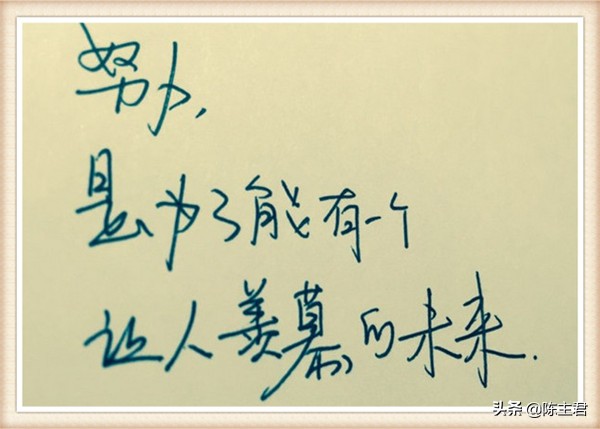 努力,
是为了能有一个
让人羡慕的未来.
头条 @陈主君